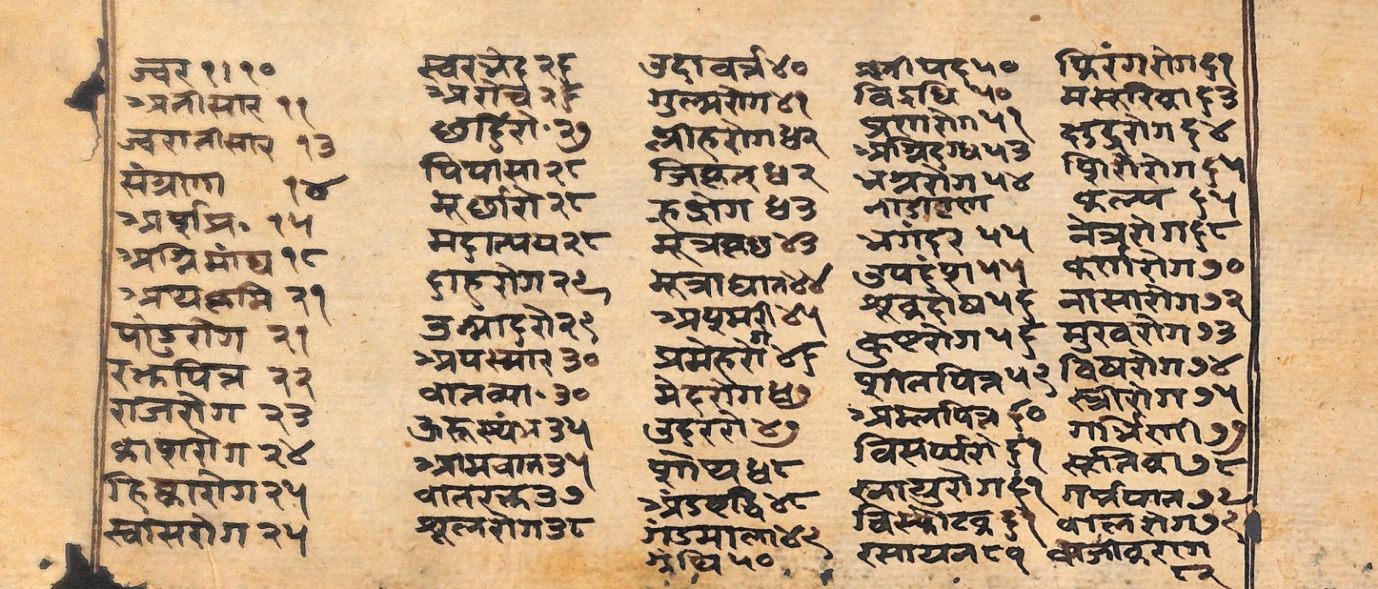 ज्वर १।१०
अतीसार ११
ज्वरातीसार १३
संग्रहणी १४
अर्शप्र॰ १५
अग्निमांद्य १८
कृमि २१
पांडुरोग २१
रक्तपित्त २२
राजरोग २३
काशरोग २४
हिक्कारोग २५
स्वासरोग २५
स्वरभेद २६
अरोच २६
छर्दिरो॰ २७
पिपासा २८
मूर्छारो २८
मदात्यय २८
दाहरोग २९
उन्मादरो २९
अपस्मार ३०
वातव्या॰ ३०
ऊरुस्थंभ ३५
आमवात ३५
वातरक्त ३७
शूलरोग ३८
उदावर्त्त ४०
गुल्मरोग ४१
प्लीहरोग ४२
४२
हृद्रोग ४३
मूत्रकृछ ४३
मूत्राघात ४४
अश्मरी ४५
प्रमेहरोग ४६
मेदरोग ४७
उदररो ४७
शोथ ४८
अंडवृद्धि ४८
गंडमाला ४९
ग्रंथि ५०
श्लीपद ५०
विद्रधि ५०
व्रणरोग ५१
अग्निदग्ध ५३
भग्नरोग ५४
नाडीव्रण
भगंदर ५५
उपदंश ५५
शूकदोष ५६
कुष्टरोग ५६
शीतपित्त ५९
अम्लपित्त ६०
विसर्प्परो ६१
स्नायुरोग ६१
विस्फोटक ६१
रसायन ८१
फिरंगरोग ६१
मसूरिका ६३
क्षुद्ररोग ६४
शिरोरोग ६५
६५
नेत्ररोग ६८
कर्णरोग ७०
नासारोग ७२
मुखरोग ७३
विषरोग ७४
स्त्रीरोग ७५
गर्भिणी ७७
सूतिका ७८
गर्भपात ७८
बालरोग ७९
वाजीकरण
८२